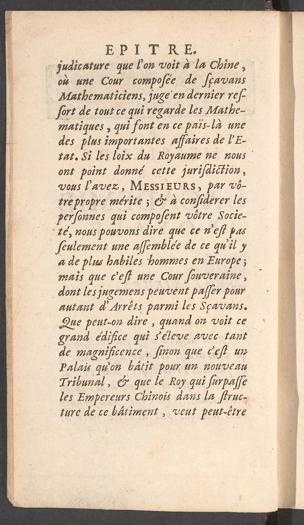 EPITRE.
judicature que l'on voit à la Chine,
où une Cour composée de sçavans
Mathematiciens, juge en dernier res-
sort de tout ce qui regarde les Mathe-
matiques, qui font en ce païs-là une
des plus importantes affaires de l'E-
tat. Si les loix du Royaume ne nous
ont point donné cette jurisdiction,
vous l'avez, MESSIEURS, par vô-
tre propre mérite; & à considerer les
personnes qui composent vôtre Socie-
té, nous pouvons dire que ce n'est pas
seulement une assemblée de ce qu'il y
a de plus habiles hommes en Europe;
mais que c'est une Cour souveraine,
dont les jugemens peuvent passer pour
autant d'Arrêts parmi les Sçavans.
Que peut-on dire, quand on voit ce
grand édifice qui s'éleve avec tant
de magnificence, sinon que c'est un
Palais qu'on bâtit pour un nouveau
Tribunal, & que le Roy qui surpasse
les Empereurs Chinois dans la struc-
ture de ce bâtiment, veut peut-être